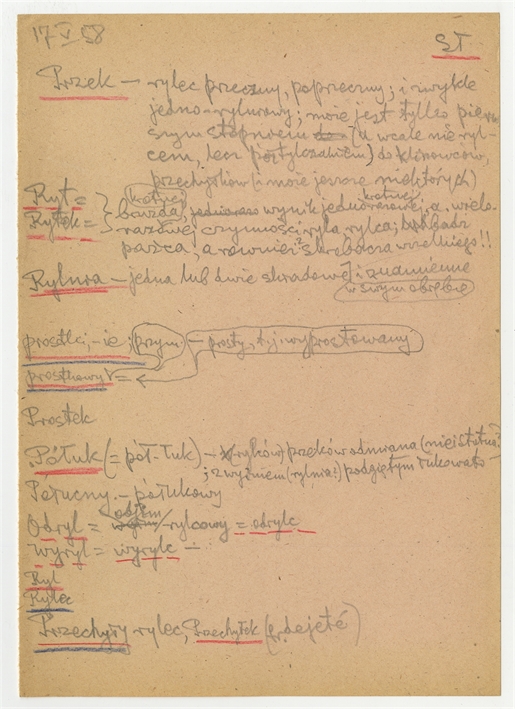 17 V 58
ST
Przek — rylec przeczny, poprzeczny; i zwykle
jedno-rylcowy; może jest tylko pierw
szym stopniem do (a wcale nie ryl-
cem, lecz półtylczakiem) do klinowców,
przechyłków (i może jeszcze niektórych)
Ryt =
Rytek =
bruzda, jednorazowy wynik jednorazowej, a wielo-
razowej czynności ryla, rylca, bądź
pazca, a również skrobacza wszelkiego!!
Rylnia — jedna lub dwie skradowe i znamienne
w swym obrębie
prostki, -ie, (przym) — prosty, t.j. wyprostowany
prostkowy =
Prostek
Półłuk (= pół-łuk) — (rylców) przeków odmiana (nie istotna?
; z wyżniem (rylnią?) podgiętym łukowato
Półłuczny — półłukowy
Odryl = odłam rylcowy = odrylc
Wyryl = wyrylc —
Ryl
Rylec
Przechyły rylec, Przechyłek (b. dejeté)